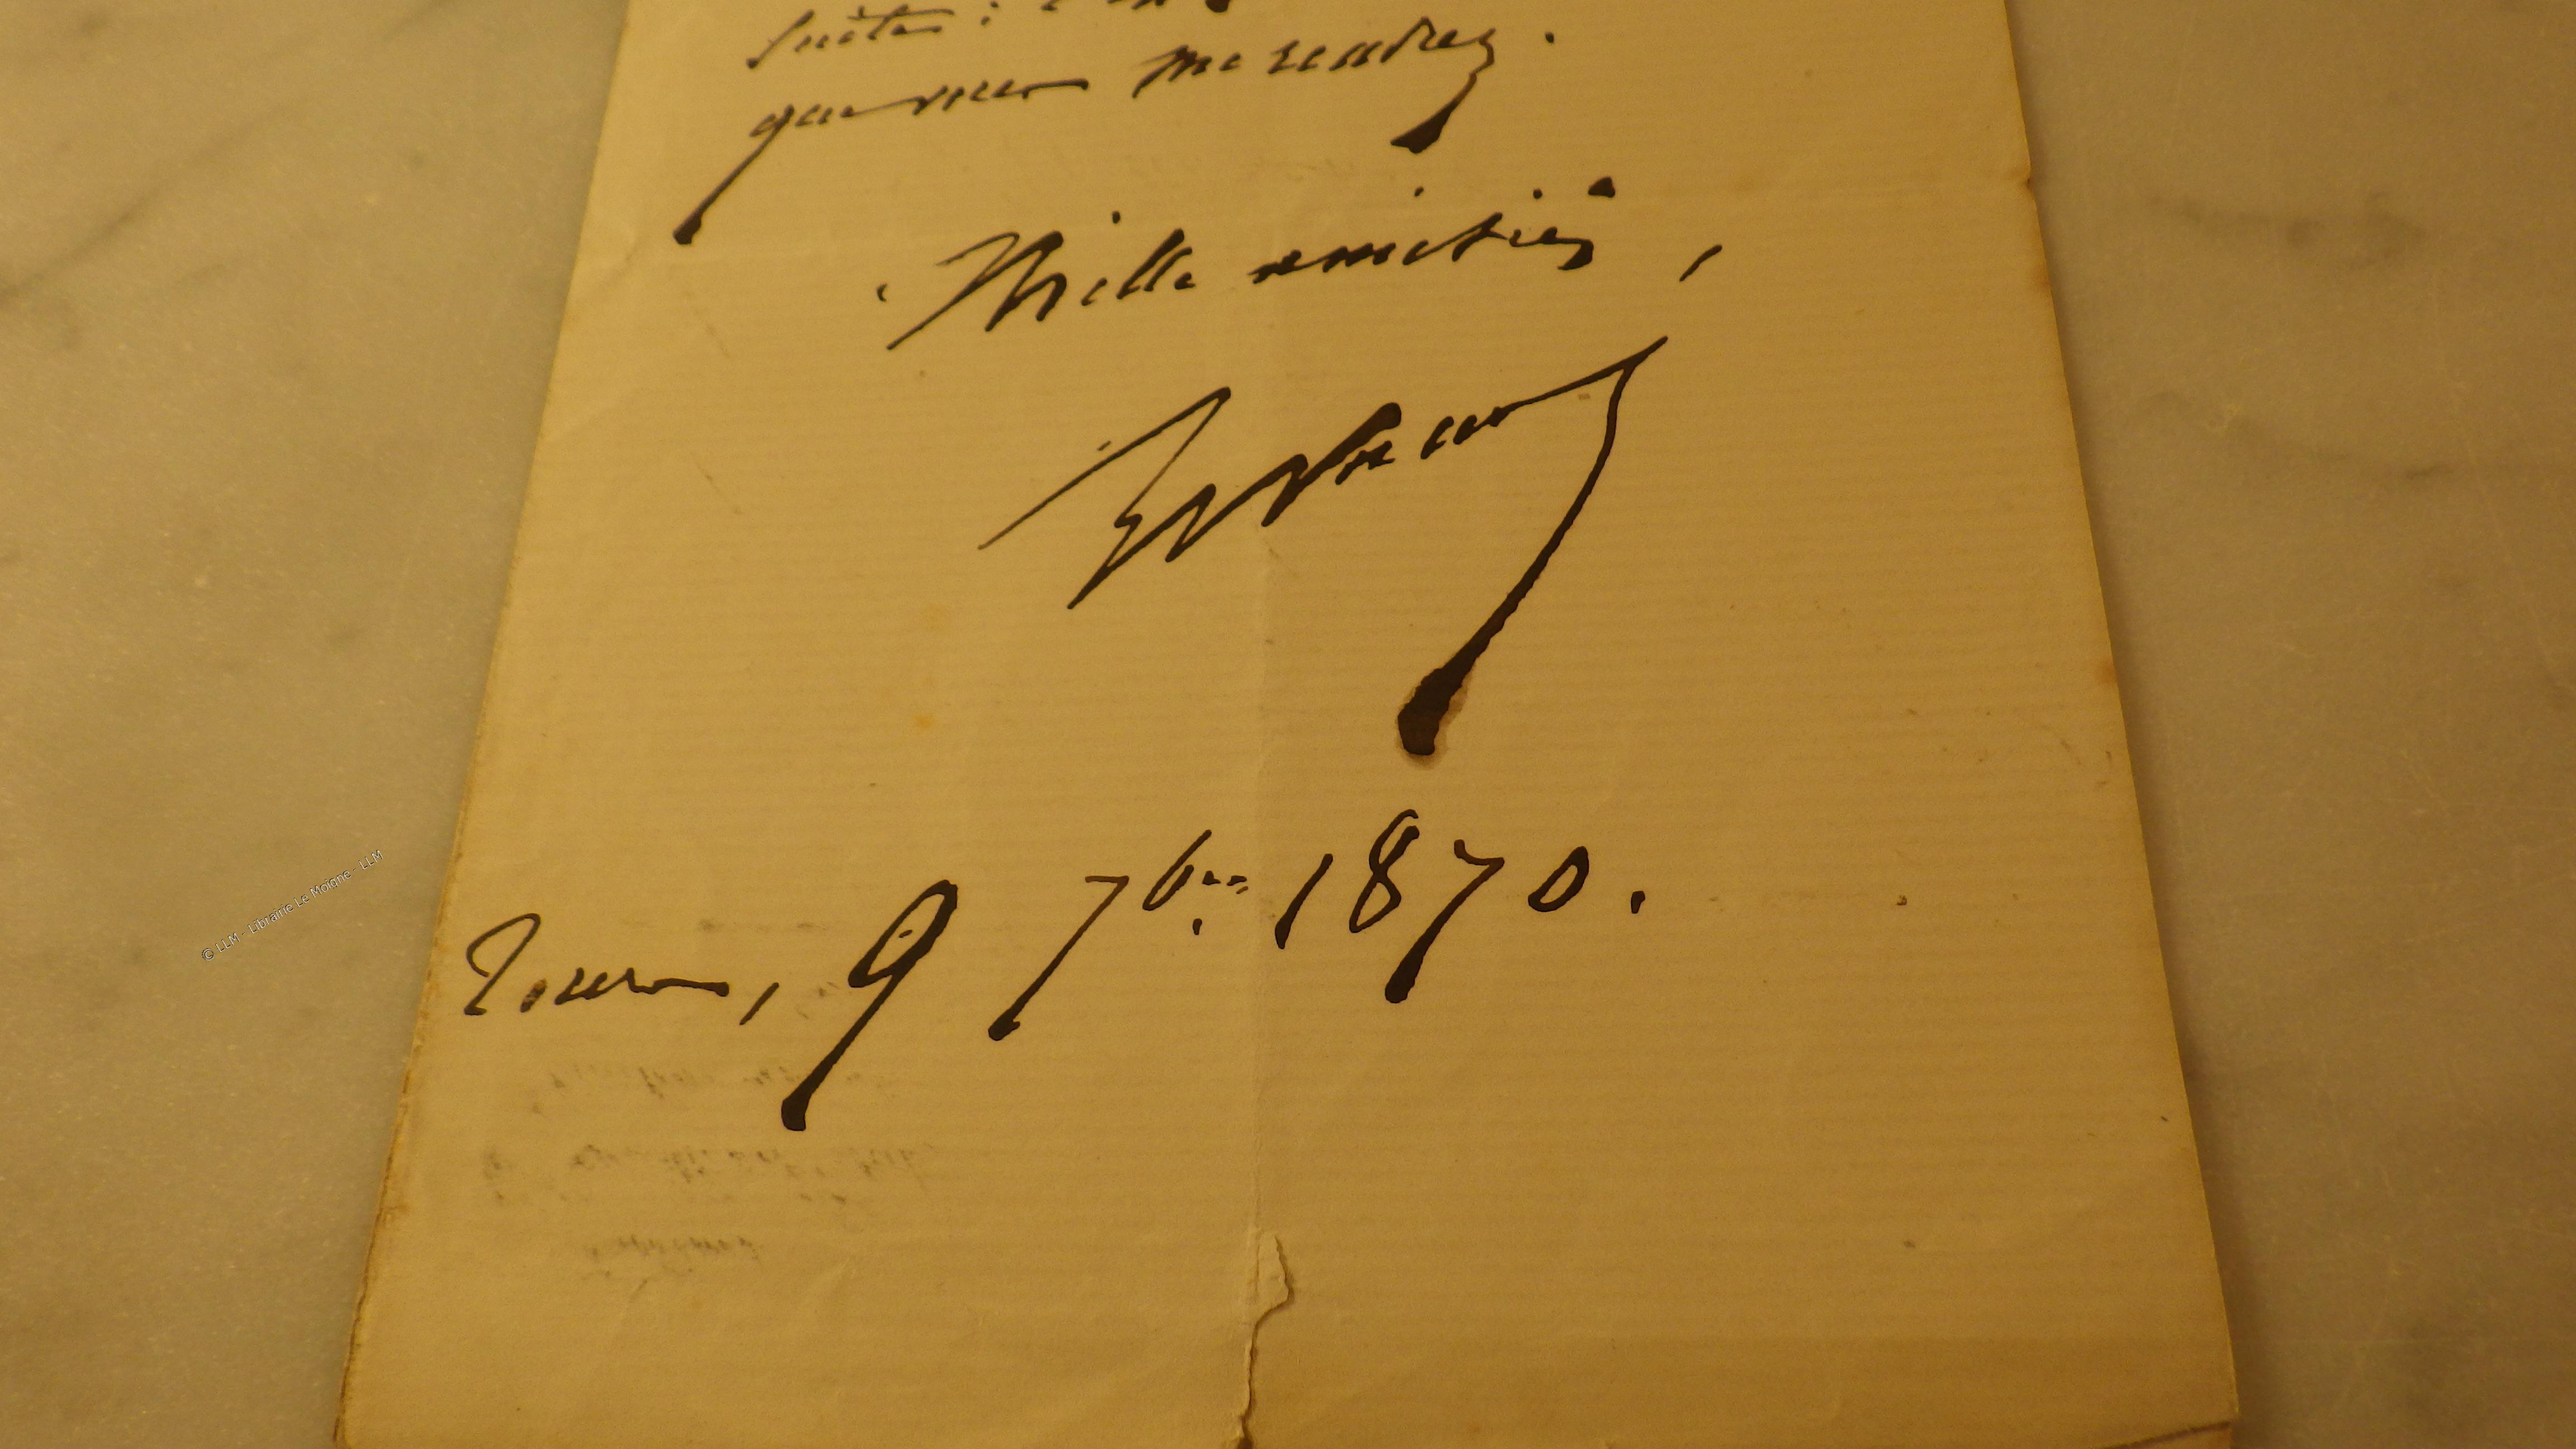 suite :
que vous me rendrez.
Mille amitiés,
Tours, 9 7bre 1870.
© LLM - Librairie Le Moigne - LLM